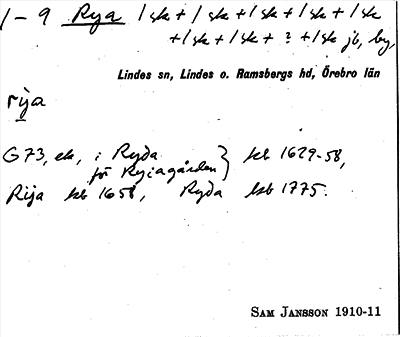 1-9 Rya 1 sk + 1 sk + 1 sk + 1 sk + 1 sk
+ 1 sk + 1 sk + ? + 1 sk jb, by,
Lindes sn, Lindes o. Ramsbergs hd, Örebro län
rya
G 73, ek, i Ryda
på Ryiagården } kb 1629-58,
Rija kb 1658, Ryda hsb 1775.
SAM JANSSON 1910-11